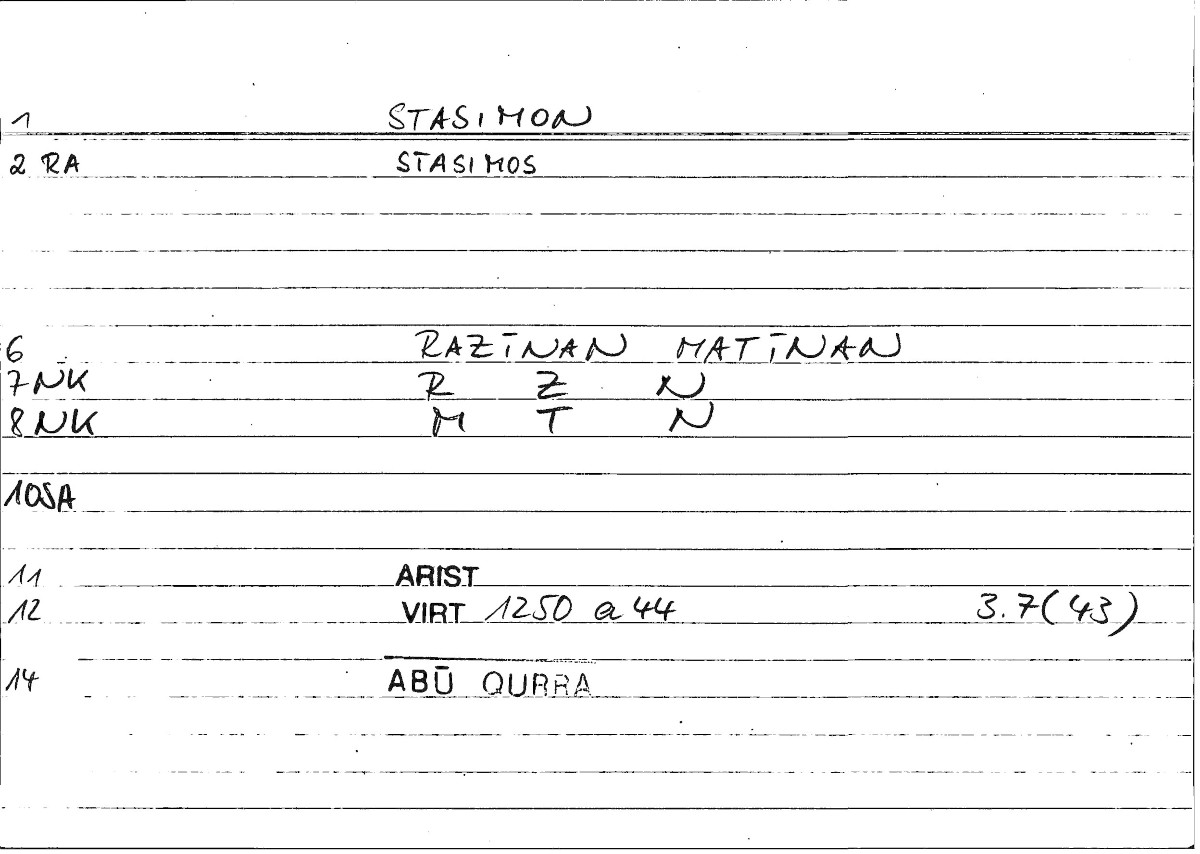 1 STASIMON
2 RA STASIMOS
6 RAZĪNAN MATĪNAN
7 NK R Z N
8 NK M T N
10 SA
11 ARIST
12 VIRT 1250 a 44 3.7(43)
14 ABŪ QURRA